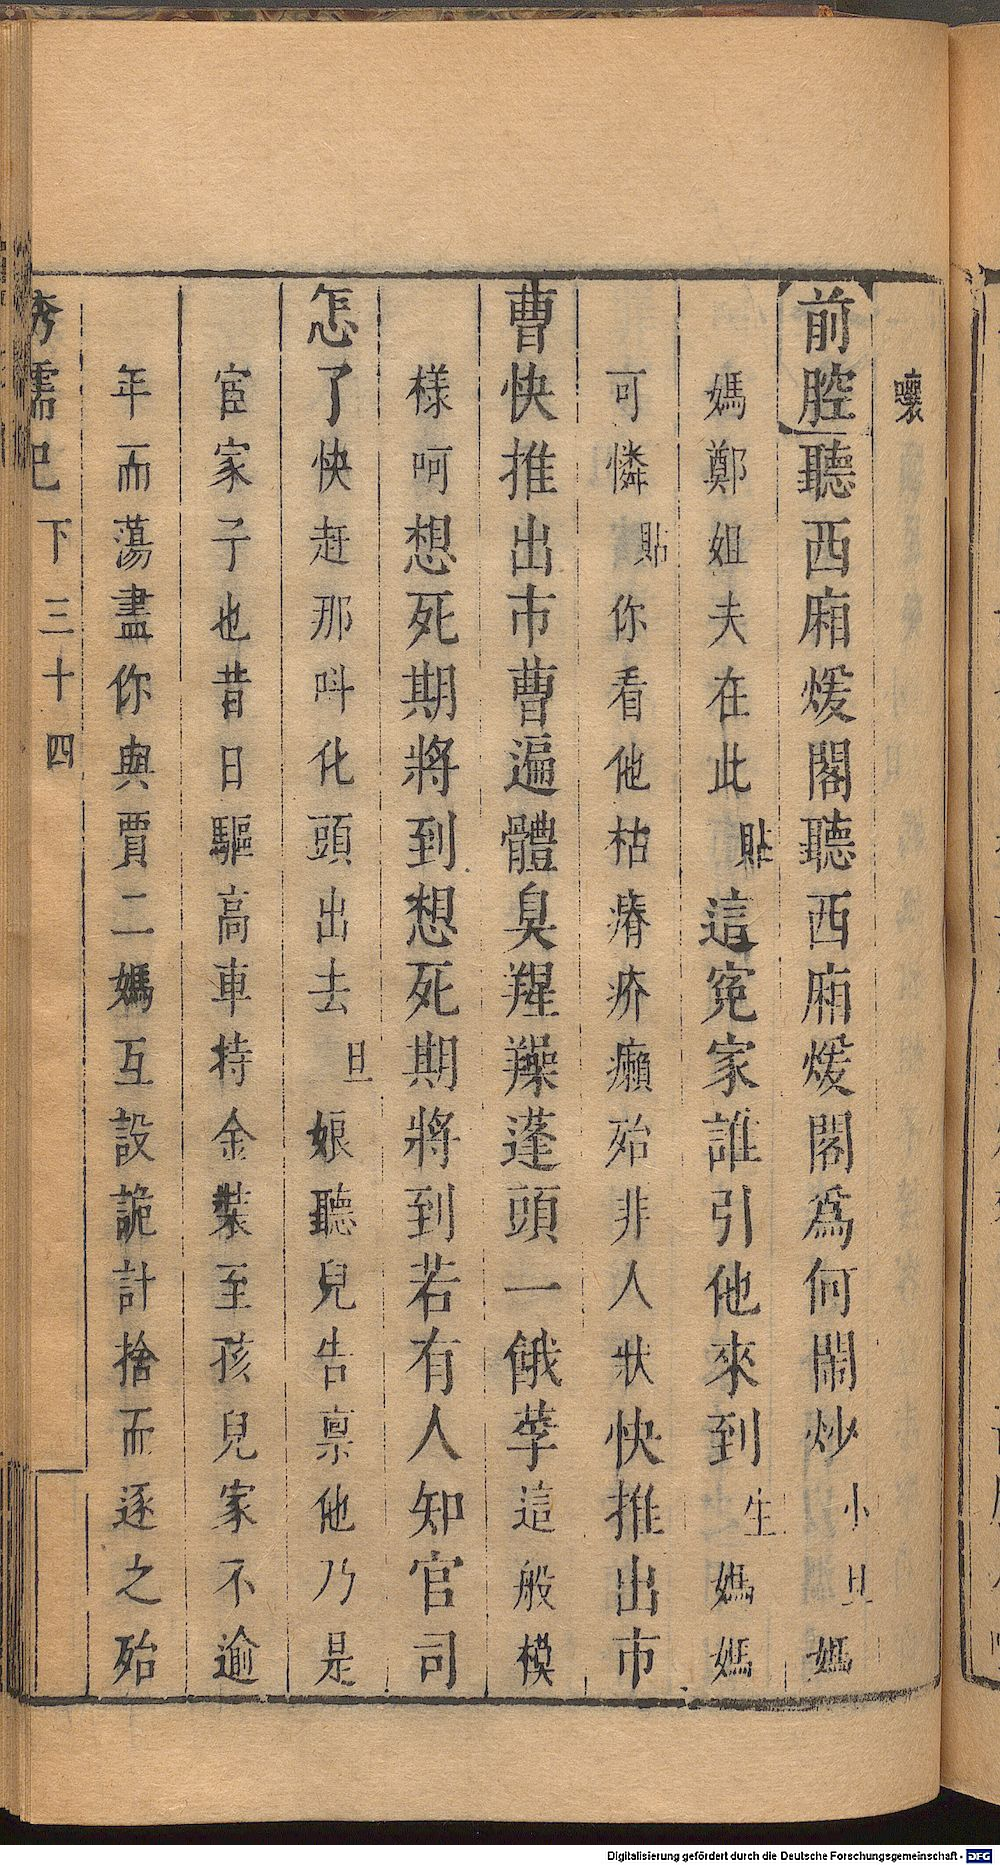 嚷
前腔聽西廂煖閣聽西廂煖閣爲何鬧炒小旦媽
媽鄭姐夫在此貼這寃家誰引他來到生媽媽
可憐貼你看他枯瘠疥癩殆非人狀快推出市
曹快推出市曹遍體臭羶臊蓬頭一餓莩這般模
樣呵想死期將到想死期將到若有人知官司
怎了快赶那呌化頭出去旦娘聽兒告禀他乃是
宦家子也昔日驅高車持金裝至孩兒家不逾
年而蕩盡你與賈二媽互設詭計捨而逐之殆
繡襦記 下 三十四
Digitalisierung gefördert durch die Deutsche Forschungsgemeinschaft - DFG